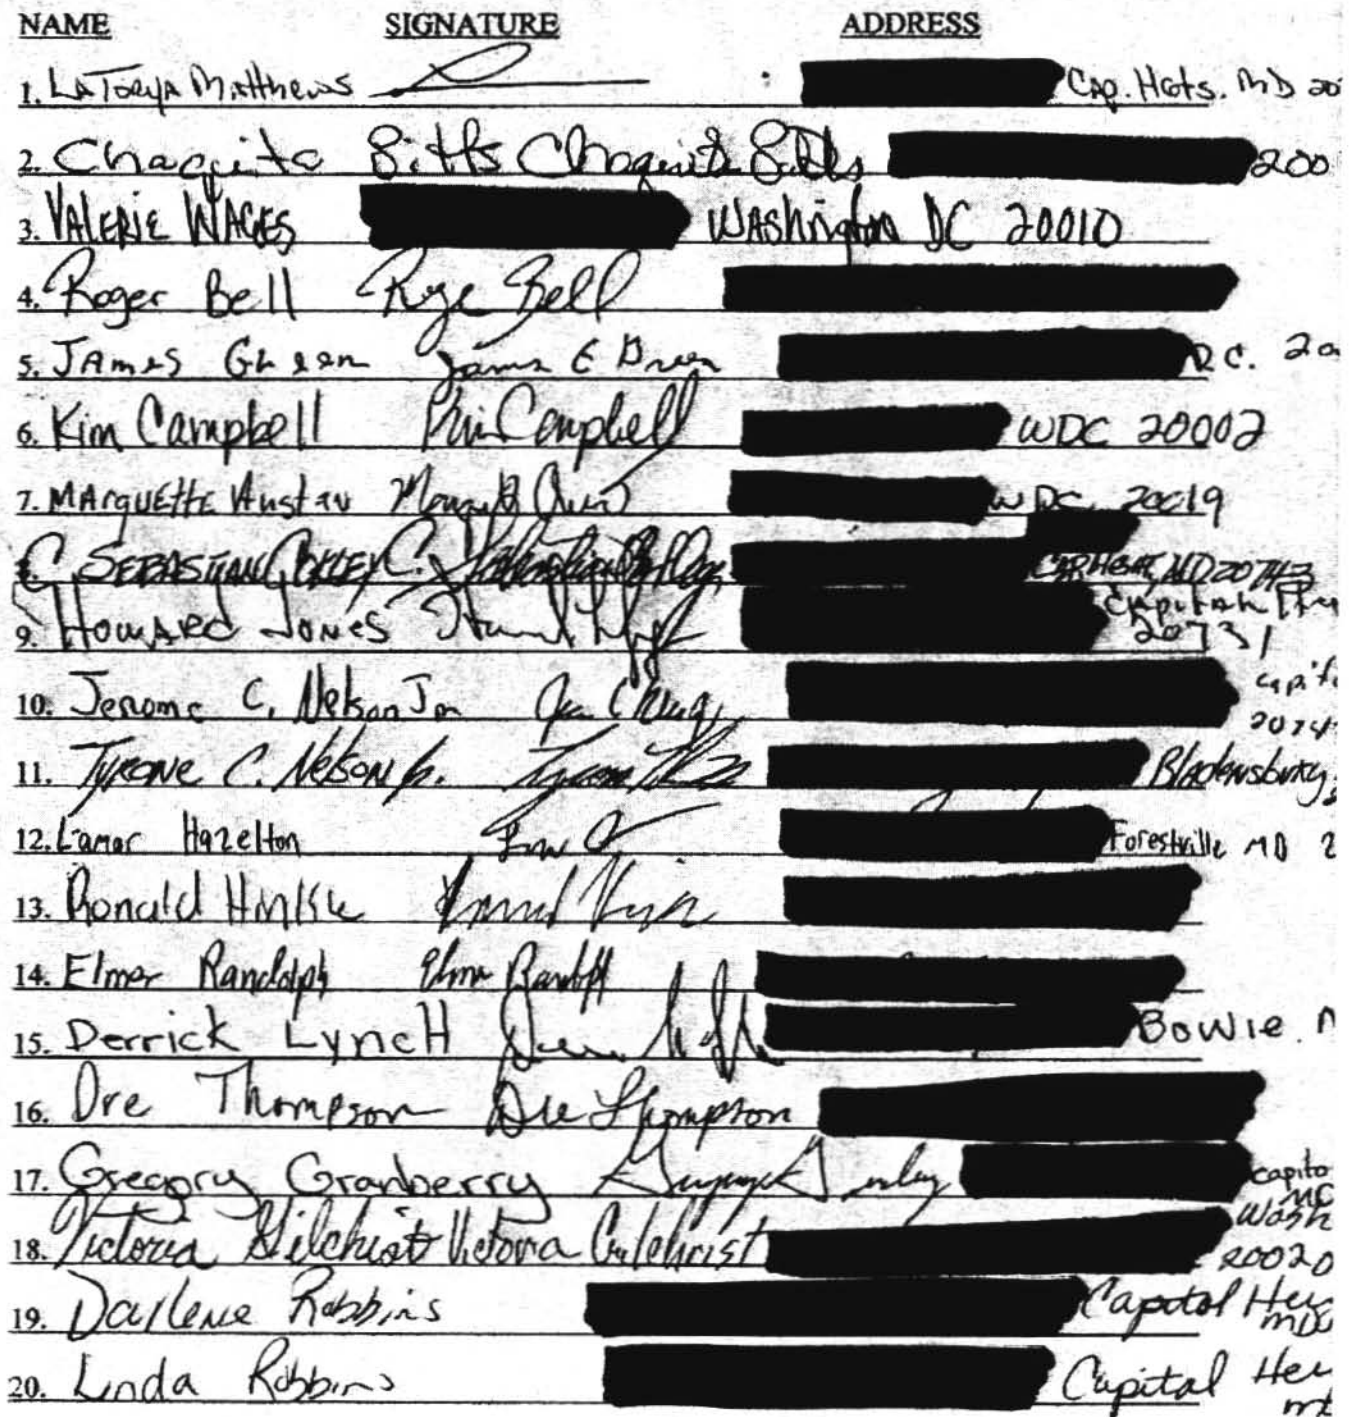 NAME SIGNATURE ADDRESS
1. LaTonya Matthews Cap. Hgts. MD 20
2. Chaquita Bitts Chaquita Bitts 200
3. VALERIE WAGES WAShington DC 20010
4. Roger Bell Roge Bell
5. JAmes Green James E Green D.C. 20
6. Kim Campbell Kim Campbell WDC 20002
7. MArquette Austin WDC 20019
8. C. SEBASTIAN COXLEY C. Sebastian CAP. HGT, MD 20743
9. HowARD JONES Capitah 20731
10. Jerome C. Nelson Jr. capit 2074
11. TYRONE C. Nelson Jr. Bladensburg,
12. Lamar Hazelton Forestville MD 2
13. Ronald
14. Elmer Randolph Elmer Randolph
15. Derrick LyncH Bowie. M
16. Dre Thompson Dre Thompson
17. Gregory Granberry capito
18. Victoria Gilchrist Victoria Gilchrist Wash 20020
19. Darlene Robbins Capitol Hei
20. Linda Robbins Capital Hei